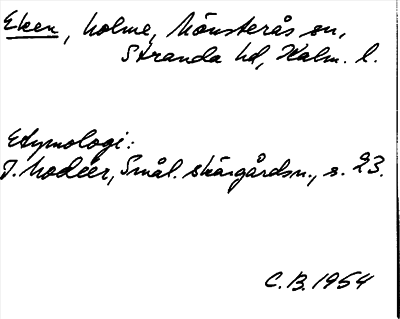 Eken, holme, Mönsterås sn,
Stranda hd, Kalm. l.
Etymologi:
I. Modéer, Smål. skärgårdsn., s. 23.
C.B. 1954